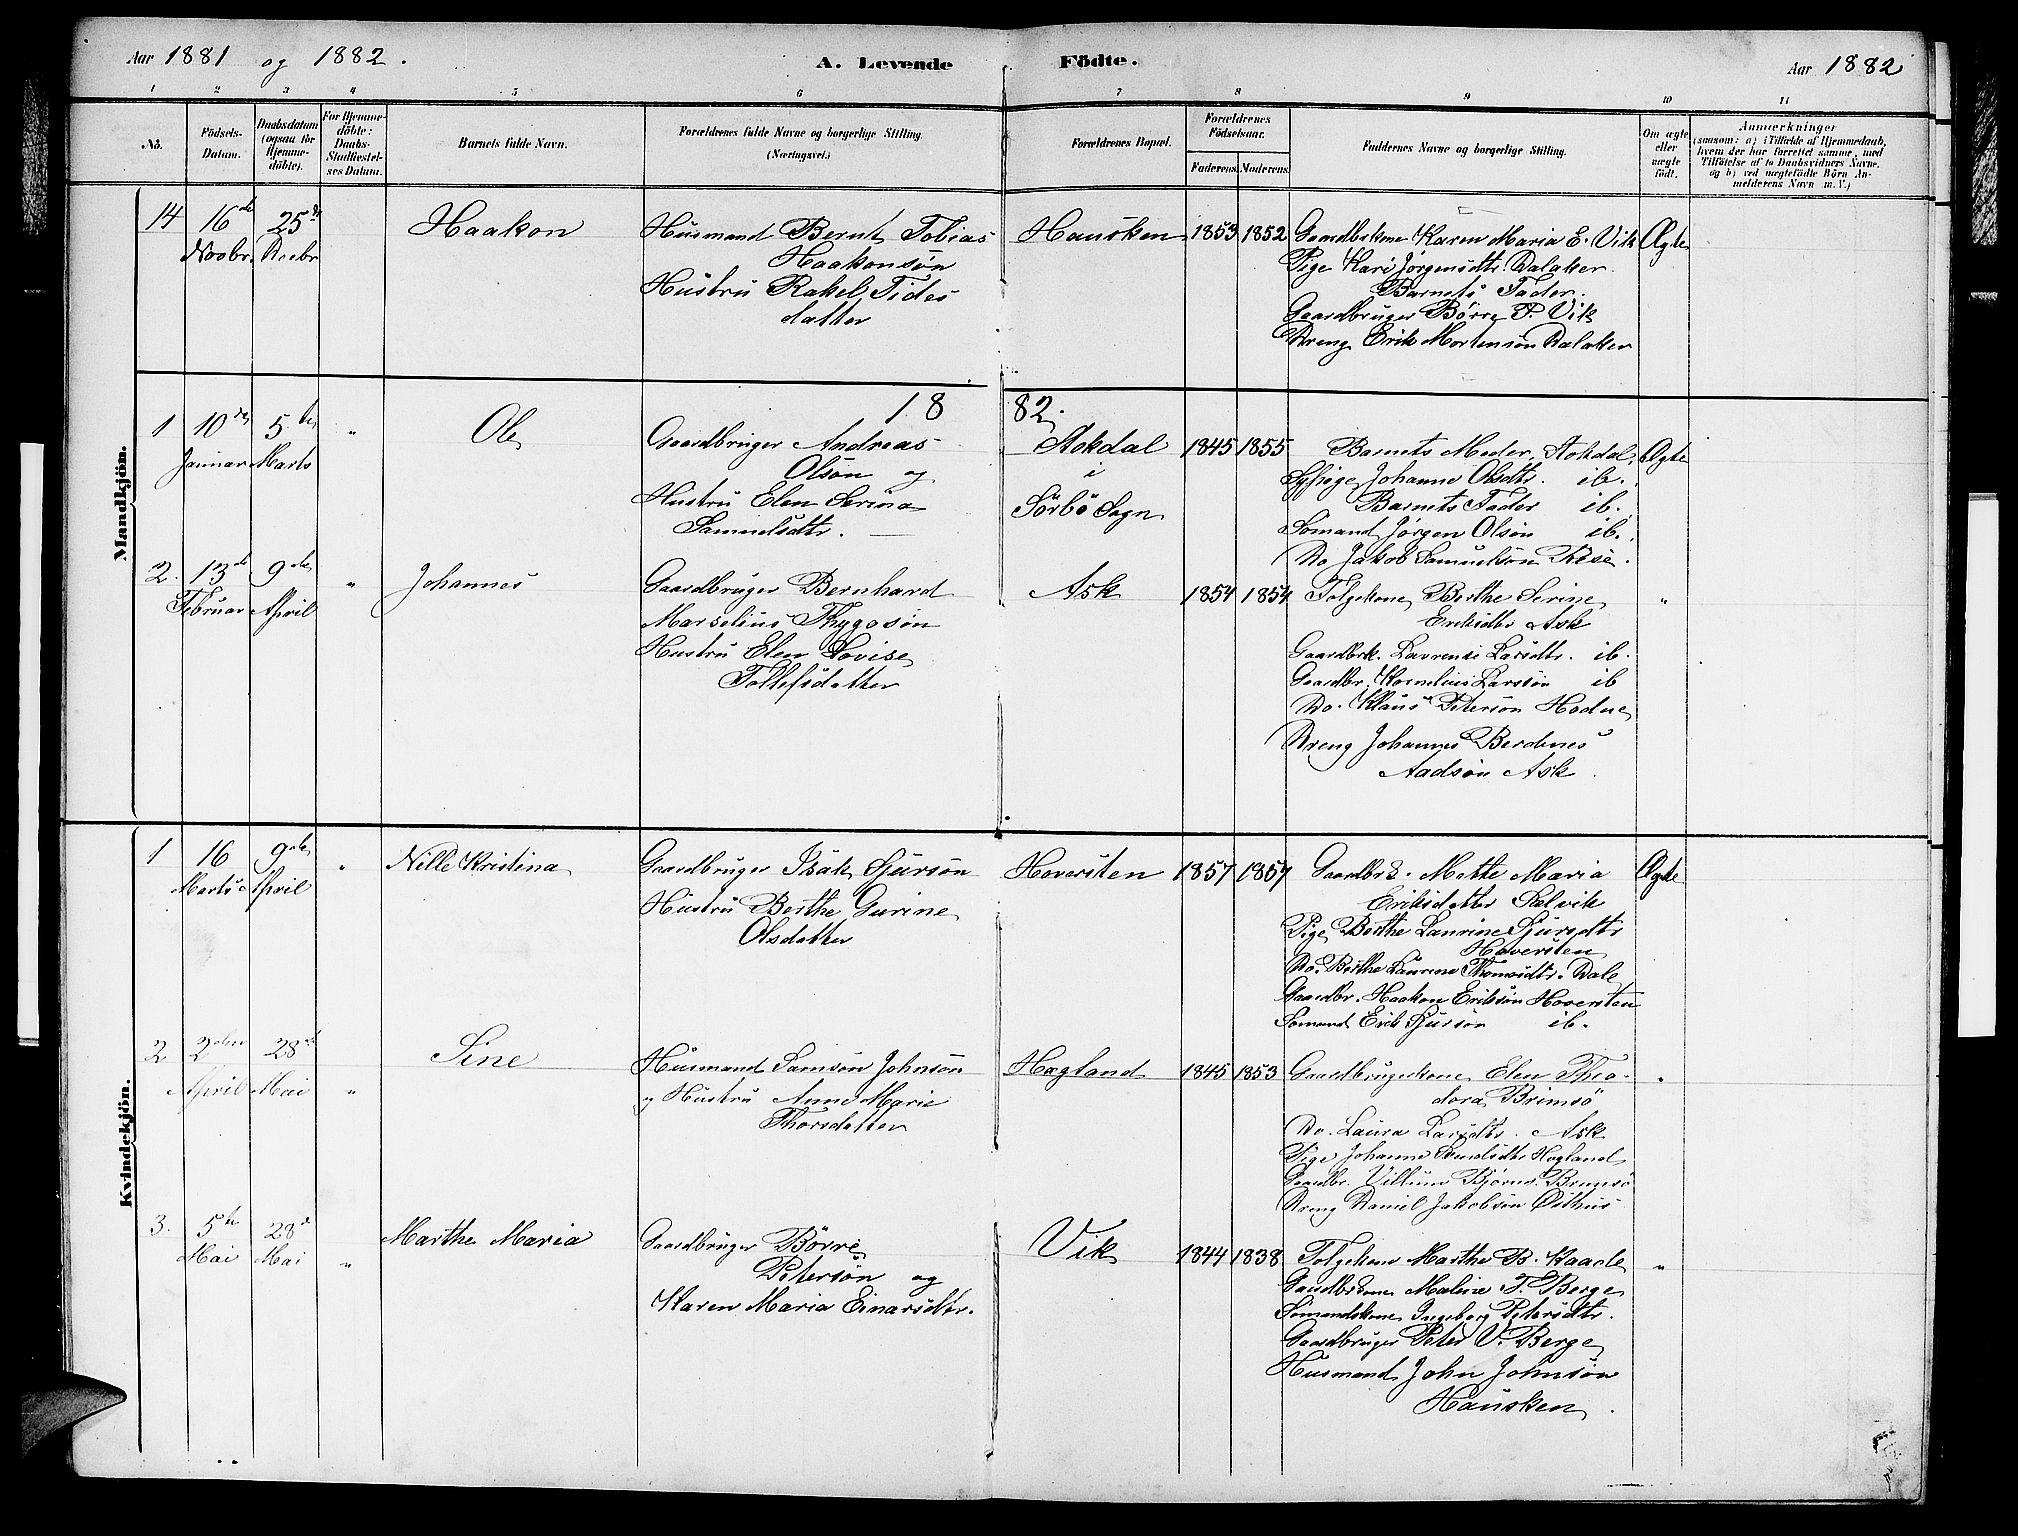 Aar 1881 og 1882.
A. Levende Födte.
Aar 1882
1 2 3 4 5 6 7 8 9 10 11
No.
Födsels-
Datum.
Daabsdatum
(ogsaa for
Hjemme-
döbte).
For Hjemme-
döbte:
Daabs-
Stadfæstel-
ses Datum.
Barnets fulde Navn.
Forældrenes fulde Navne og borgerlige Stilling.
(Næringsvei.)
Forældrenes Bopæl.
Forældrenes
Födselsaar.
Faderens. Moderens.
Faddernes Navne og borgerlige Stilling.
Om ægte
eller
uægte
födt.
Anmærkninger
(saasom: a) i Tilfælde af Hjemmedaab,
hvem der har forrettet samme, med
Tilföielse af to Daabsvidners Navne,
og b) ved uægtefödte Börn An-
melderens Navn m. V.)
Mandkjön.
14 16de 25de Haakon
Novbr. Decbr
Husmand Bernt Tobias
Haakonsøn
Hustru Rakel Tides
datter
Hausken 1853 1852
Gaardbrkone Karen Maria E. Vik Ægte
Pige Kari Jørgensdtr. Dalaker
Barnets Fader.
Gaardbruger Børre P. Vik
Dreng Erik Mortensøn Dalaker
1882.
1 10de 5te " Ole
Januar Marts
Gaardbruger Andreas
Olsøn og
Hustru Elen Serina
Samuelsdtr.
Askdal
i
Sörbö Sogn
1845 1855
Barnets Moder, Askdal, Ægte
Sypige Johanne Olsdtr. ib.
Barnets Fader ib.
Sömand Jørgen Olsøn ib.
Do Jakob Samuelsøn
2. 13de 9de " Johannes
Februar April
Gaardbruger Bernhard
Marselius Thygesøn
Hustru Elen Lovise
Tollefsdatter
Ask 1854 1854
Folgekone Berthe Serine "
Eriksdtr Ask
Gaardbrk. Lavrense Larsdtr. ib.
Gaardbr. Kornelius Larssøn ib
Do. Klaus Petersøn Hodne
Dreng Johannes Berdines
Aadsøn Ask.
Kvindekjön.
1 16 9de " Nille Kristina
Marts April
Gaardbruger Isak Sjursøn
Hustru Berthe Gurine
Olsdatter
Hoversten 1857 1857
Gaardbrk. Mette Maria Ægte
Eriksdatter Selvik
Pige Berthe Laurine Sjursdtr
Hoversten
Do. Berthe Laurine Thomasdtr. Dale
Gaardbr. Haakon Eriksøn Hoversten
Sömand Erik Sjursøn ib.
2 2den 28de Sine
April Mai "
Husmand Samson Johnsøn
og Hustru Anne Marie
Thorsdatter
Hagland 1845 1853
Gaardbrugerkone Elen Theo- "
dora Brimsö
Do. Laura Larsdtr. Ask
Pige Johanne Hagland
Gaardbr. Villum Bjørns. Brimsö
Dreng Daniel Jakobsøn Østhus
3. 5te 28de Marthe Maria
Mai Mai "
Gaardbruger Børre
Petersøn og
Karen Maria Einarsdtr.
Vik 1844 1838
Folgekone Marthe B. Kaade "
Gaardbrkone Maline T. Berge
Sömandskone Ingeborg Petersdtr.
Gaardbruger Peter V. Berge
Husmand John Johnsøn
Hausken.